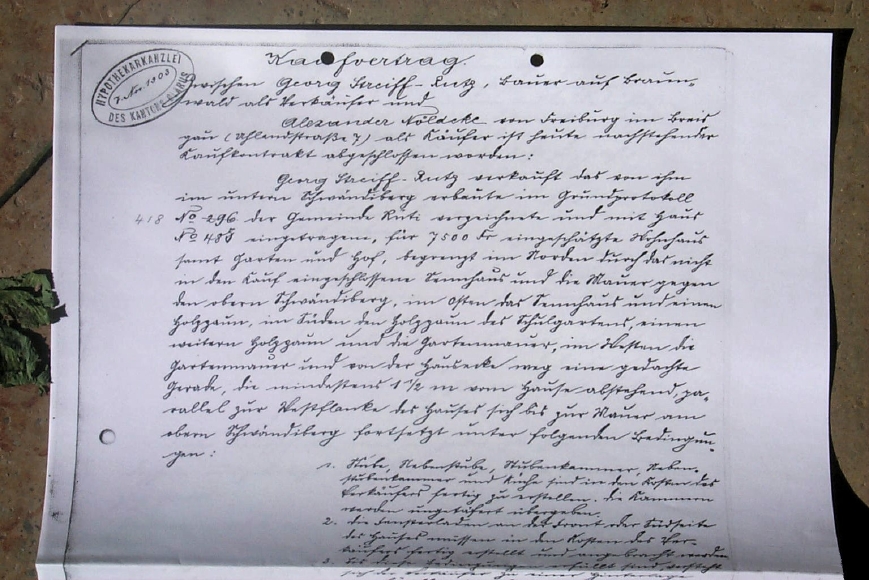 HYPOTHEKARKANZLEI
DES KANTONS GLARUS
Kaufvertrag.
zwischen Georg Streiff-Kutz, Bauer auf Braun-
wald als Verkäufer und
Alexander Nöldeke von Freiburg im Breis
gau (Uhlandstraße 7) als Käufer ist heute nachstehender
Kaufkontrakt abgeschlossen worden:
Georg Streiff-Kutz verkauft das von ihm
im untern Schwändiberg erbaute im Grundprotokoll
418 No 296 der Gemeinde Rüti verzeichnete und mit Haus
No 485 eingetragene, für 7500 Fr eingeschätzte Wohnhaus
samt Garten und Hof, begrenzt im Norden durch das nicht
in den Kauf eingeschlossene Sennhaus und die Mauer gegen
den obern Schwändiberg, im Osten das Sennhaus und einen
Holzzaun, im Süden den Holzzaun des Schulgartens, einen
weitern Holzzaun und die Gartenmauer, im Westen die
Gartenmauer und von der Hausecke weg eine gedachte
Gerade, die mindestens 1 1/2 m vom Hause abstehend, pa-
rallel zur Westflanke des Hauses sich bis zur Mauer am
obern Schwändiberg fortsetzt unter folgenden Bedingun-
gen:
1. Stube, Nebenstube, Stubenkammer, Neben-
stubenkammer und Küche sind in den Kosten des
Verkäufers fertig zu erstellen. Die Kammern
werden ungetäfert übergeben.
2. die Fensterladen an der Front oder Südseite
des Hauses müssen in den Kosten des Ver-
käufers fertig erstellt und angebracht werden
3. bis diese Bedingungen erfüllt sind versteht
sich der Verkäufer zu einer Hinterlage